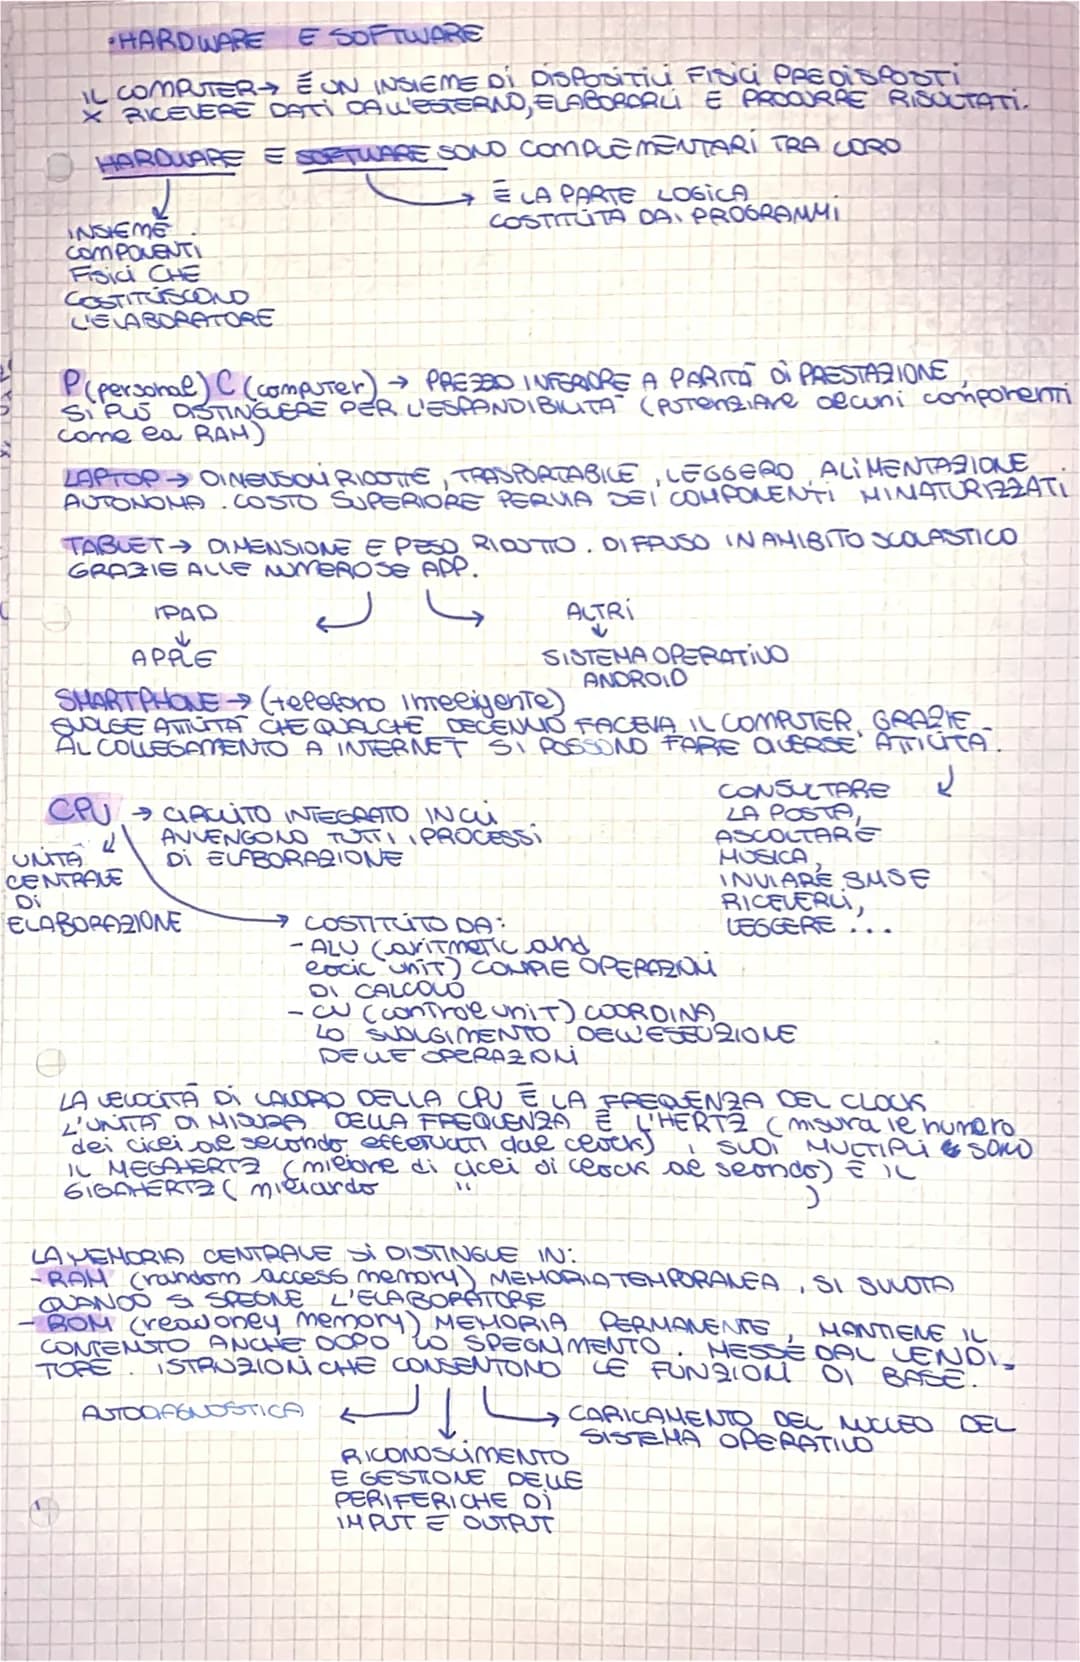 •HARDWARE E SOFTWARE
IL COMPUTER→ É UN INSIEME Di DISPOSITIVI FISICI PREDISPOSTI
X RICEVERE DATI DALL'ESTERNO, ELABORARLI E PRODURRE RISULTATI.
HARDWARE E SOFTWARE SONO COMPLEMENTARI TRA LORO
→ È LA PARTE LOGICA
COSTITUITA DAI PROGRAMMI
INSIEME
COMPONENTI
FISICI CHE
COSTITUISCONO
L'ELABORATORE
P(personal) C (computer) → PREZZO INFERIORE A PARITÀ Di PRESTAZIONE,
SI PUÒ DISTINGUERE PER L'ESPANDIBILITÀ (POTENZIARE alcuni componenti
come la RAM)
LAPTOP → DIMENSIONI RIDOTTE, TRASPORTABILE, LEGGERO, ALIMENTAZIONE
AUTONOMA. COSTO SUPERIORE PER VIA DEI COMPONENTI MINATURIZZATI
TABLET→ DIMENSIONE E PESO RIDOTTO. DIFFUSO IN AMBITO SCOLASTICO
GRAZIE ALLE NUMEROSE APP.
IPAD
↓
APPLE
ALTRI
↓
SISTEMA OPERATIVO
ANDROID
SMARTPHONE → (telefono intelligente)
SVOLGE ATTIVITÀ CHE QUALCHE DECENNIO FACEVA IL COMPUTER. GRAZIE
AL COLLEGAMENTO A INTERNET SI POSSONO FARE DIVERSE ATTIVITÀ.
CONSULTARE
LA POSTA,
ASCOLTARE
MUSICA,
INVIARE SMS E
RICEVERLI,
LEGGERE ...
CPU → CIRCUITO INTEGRATO IN CUI
AVVENGONO TUTTI I PROCESSI
Di ELABORAZIONE
UNITÀ
CENTRALE
Di
ELABORAZIONE
→ COSTITUITO DA:
- ALU (aritmetic and
logic unit) COMPIE OPERAZIONI
DI CALCOLO
- CU (control unit) COORDINA
LO SVOLGIMENTO DELL'ESECUZIONE
DELLE OPERAZIONI
LA VELOCITÀ Di LAVORO DELLA CPU È LA FREQUENZA DEL CLOCK
L'UNITÀ DI MISURA DELLA FREQUENZA È L'HERTZ (misura il numero
dei cicli al secondo effettuati dal clock) I SUOI MULTIPLI SONO
IL MEGAHERTZ (milione di cicli di clock al secondo) E IL
GIGAHERTZ ( miliardo " )
LA MEMORIA CENTRALE Si DISTINGUE IN:
-RAM (random access memory) MEMORIA TEMPORANEA, SI SVUOTA
QUANDO SI SPEGNE L'ELABORATORE
- ROM (read only memory) MEMORIA PERMANENTE, MANTIENE IL
CONTENUTO ANCHE DOPO LO SPEGNIMENTO. MESSE DAL VENDI-
TORE. ISTRUZIONI CHE CONSENTONO LE FUNZIONI DI BASE.
AUTODIAGNOSTICA
CARICAMENTO DEL NUCLEO DEL
SISTEMA OPERATIVO
RICONOSCIMENTO
E GESTIONE DELLE
PERIFERICHE Di
INPUT E OUTPUT